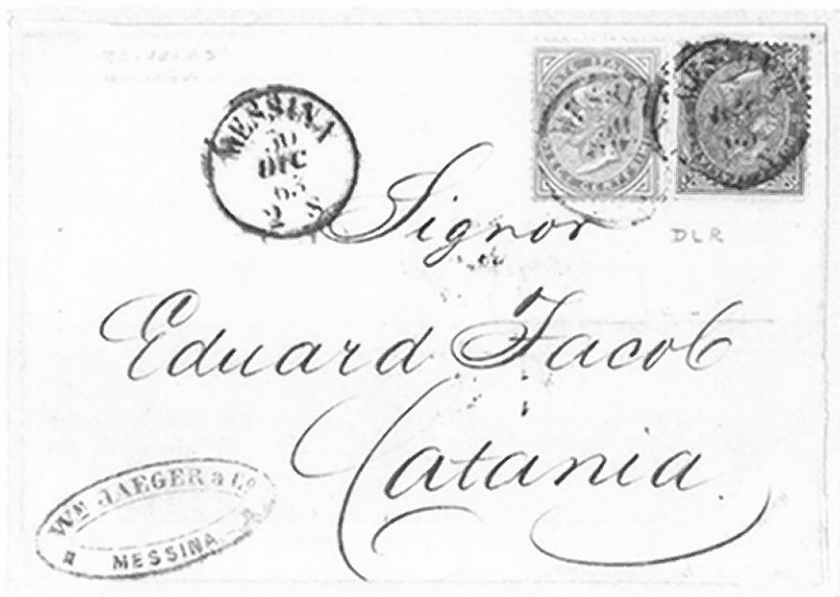 MESSINA
30
DIC
63
2 S
Signor
DLR
Eduard Jacob
Catania
Wm JAEGER & Co
MESSINA